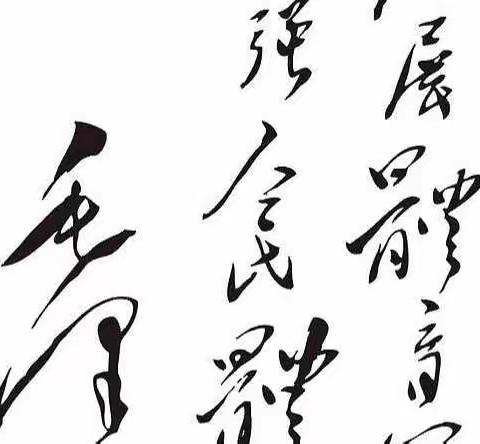 展體育
强人民體
毛澤